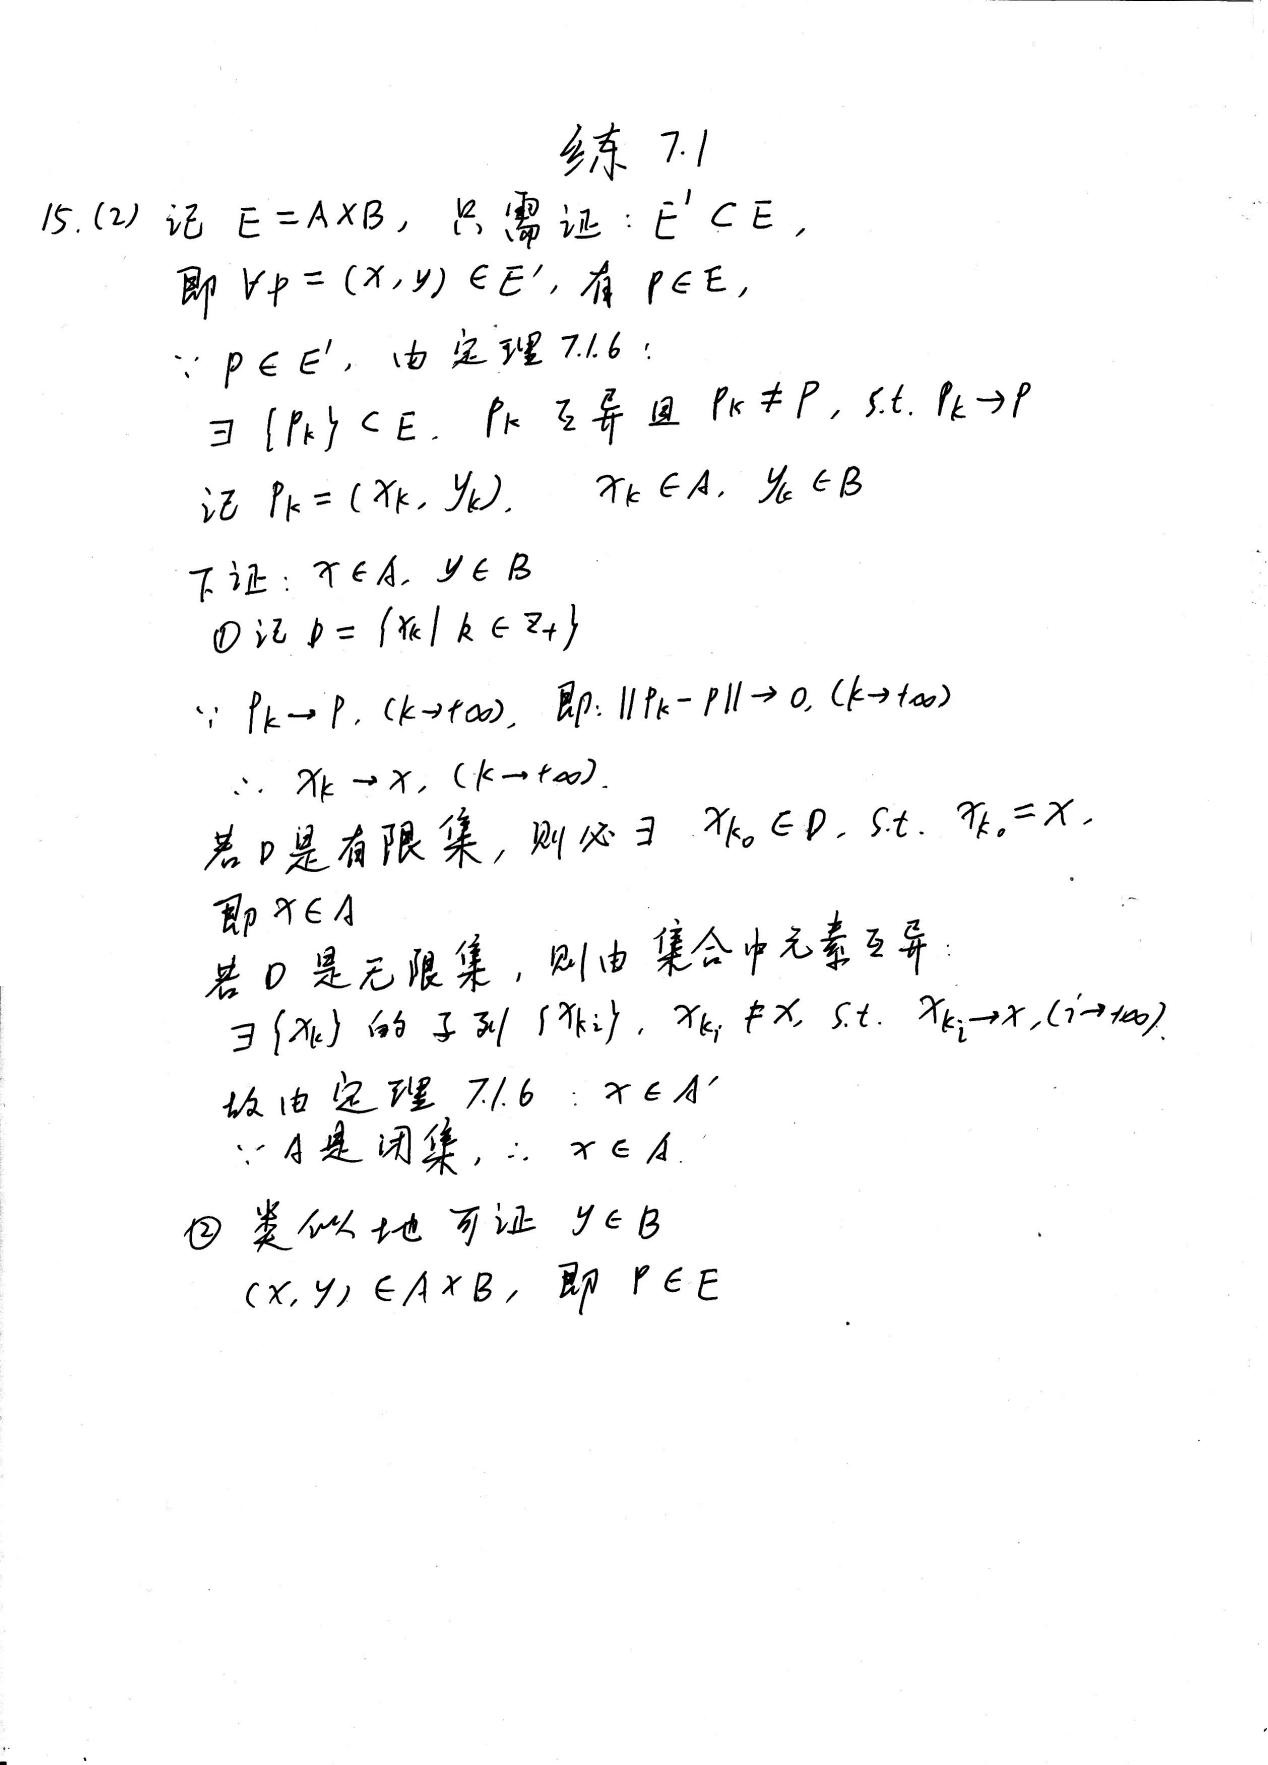 练 7.1
15.(2) 记 E=A×B, 只需证: E'⊂E,
即 ∀p=(x,y)∈E', 有 p∈E,
∵ p∈E', 由定理7.1.6:
∃{Pk}⊂E. Pk 互异且 Pk≠P, s.t. Pk→P
记 Pk=(xk, yk). xk∈A, yk∈B
下证: x∈A, y∈B
①记 D={xk|k∈Z+}
∵ Pk→P, (k→+∞), 即: ||Pk-P||→0, (k→+∞)
∴ xk→x, (k→+∞).
若D是有限集, 则必∃ xk₀∈D, s.t. xk₀=x,
即 x∈A
若D是无限集, 则由集合中元素互异:
∃{xk}的子列{xki}, xki≠x, s.t. xki→x, (i→+∞).
故由定理 7.1.6: x∈A'
∵ A是闭集, ∴ x∈A.
② 类似地可证 y∈B
(x,y)∈A×B, 即 P∈E